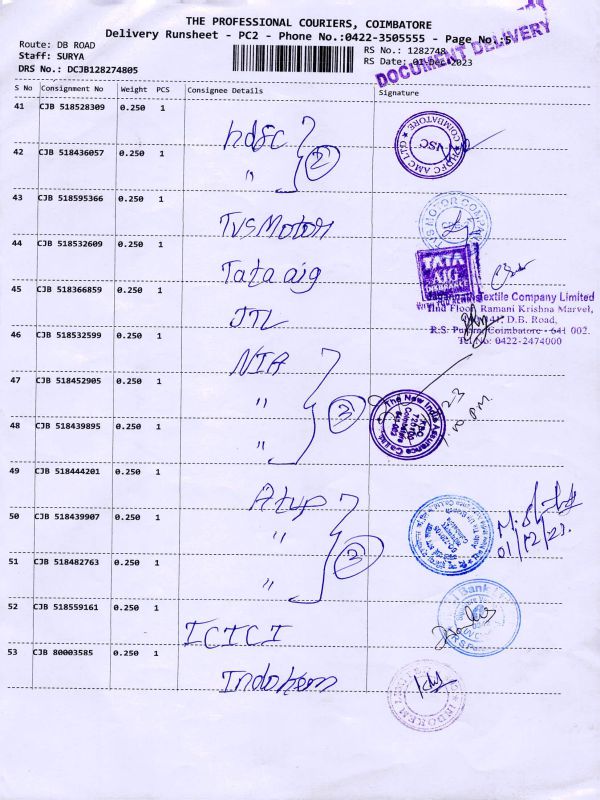 THE PROFESSIONAL COURIERS, COIMBATORE
Delivery Runsheet - PC2 - Phone No.:0422-3505555 - Page No.:5
DOCUMENT DELIVERY
Route: DB ROAD
RS No.: 1282748
Staff: SURYA
RS Date: 01-Dec-2023
DRS No.: DCJB128274805
S No Consignment No Weight PCS Consignee Details Signature
41 CJB 518528309 0.250 1
hdfc
HDFC AMC LTD COIMBATORE VSC
42 CJB 518436057 0.250 1
" 2
43 CJB 518595366 0.250 1
TVS Motor
TVS MOTOR COMPANY
44 CJB 518532609 0.250 1
Tata aig
TATA AIG INSURANCE
WITH YOU ALWAYS
45 CJB 518366859 0.250 1
JTL
Jagannath Textile Company Limited
IInd Floor, Ramani Krishna Marvel,
D.B. Road,
R.S. Puram, Coimbatore - 641 002.
Tel No: 0422-2474000
46 CJB 518532599 0.250 1
NIA
47 CJB 518452905 0.250 1
" 3
The New India Assurance Co. Ltd.
48 CJB 518439895 0.250 1
"
49 CJB 518444201 0.250 1
50 CJB 518439907 0.250 1
" 3
01/12/23.
51 CJB 518482763 0.250 1
"
52 CJB 518559161 0.250 1
ICICI
Bank
53 CJB 80003585 0.250 1
Indokem
INDOKEM